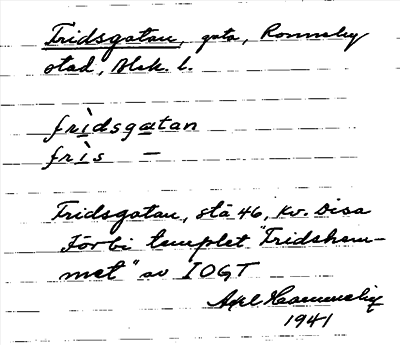 Fridsgatan, gata, Ronneby
stad, Blek. l.
frìdsgatan
frìs –
Fridsgatan, stä 46, kv. Disa
Förbi templet "Fridshem-
met" av IOGT
Axel
1941